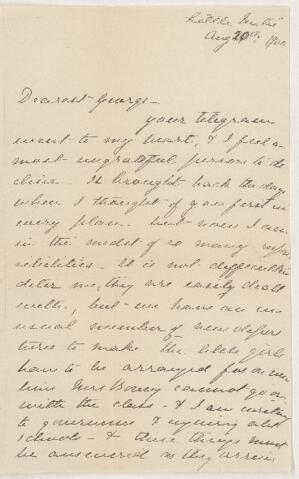 Aug 20th 1900
Dearest George -
your telegram
went to my heart, & I feel a
most ungrateful person to de
cline. It brought back the days
when I thought of you first in
every plan. but now I am
in the midst of so many respon
sibilities. It is not
me, they are easily dealt
with, but we have an un
usual number of new depar
tures to make. The little girls
have to be arranged for on
him Mrs cannot go on
with the class - & I am writing
to governess & inquiring about
schools - & these things must
be answered as they arrive